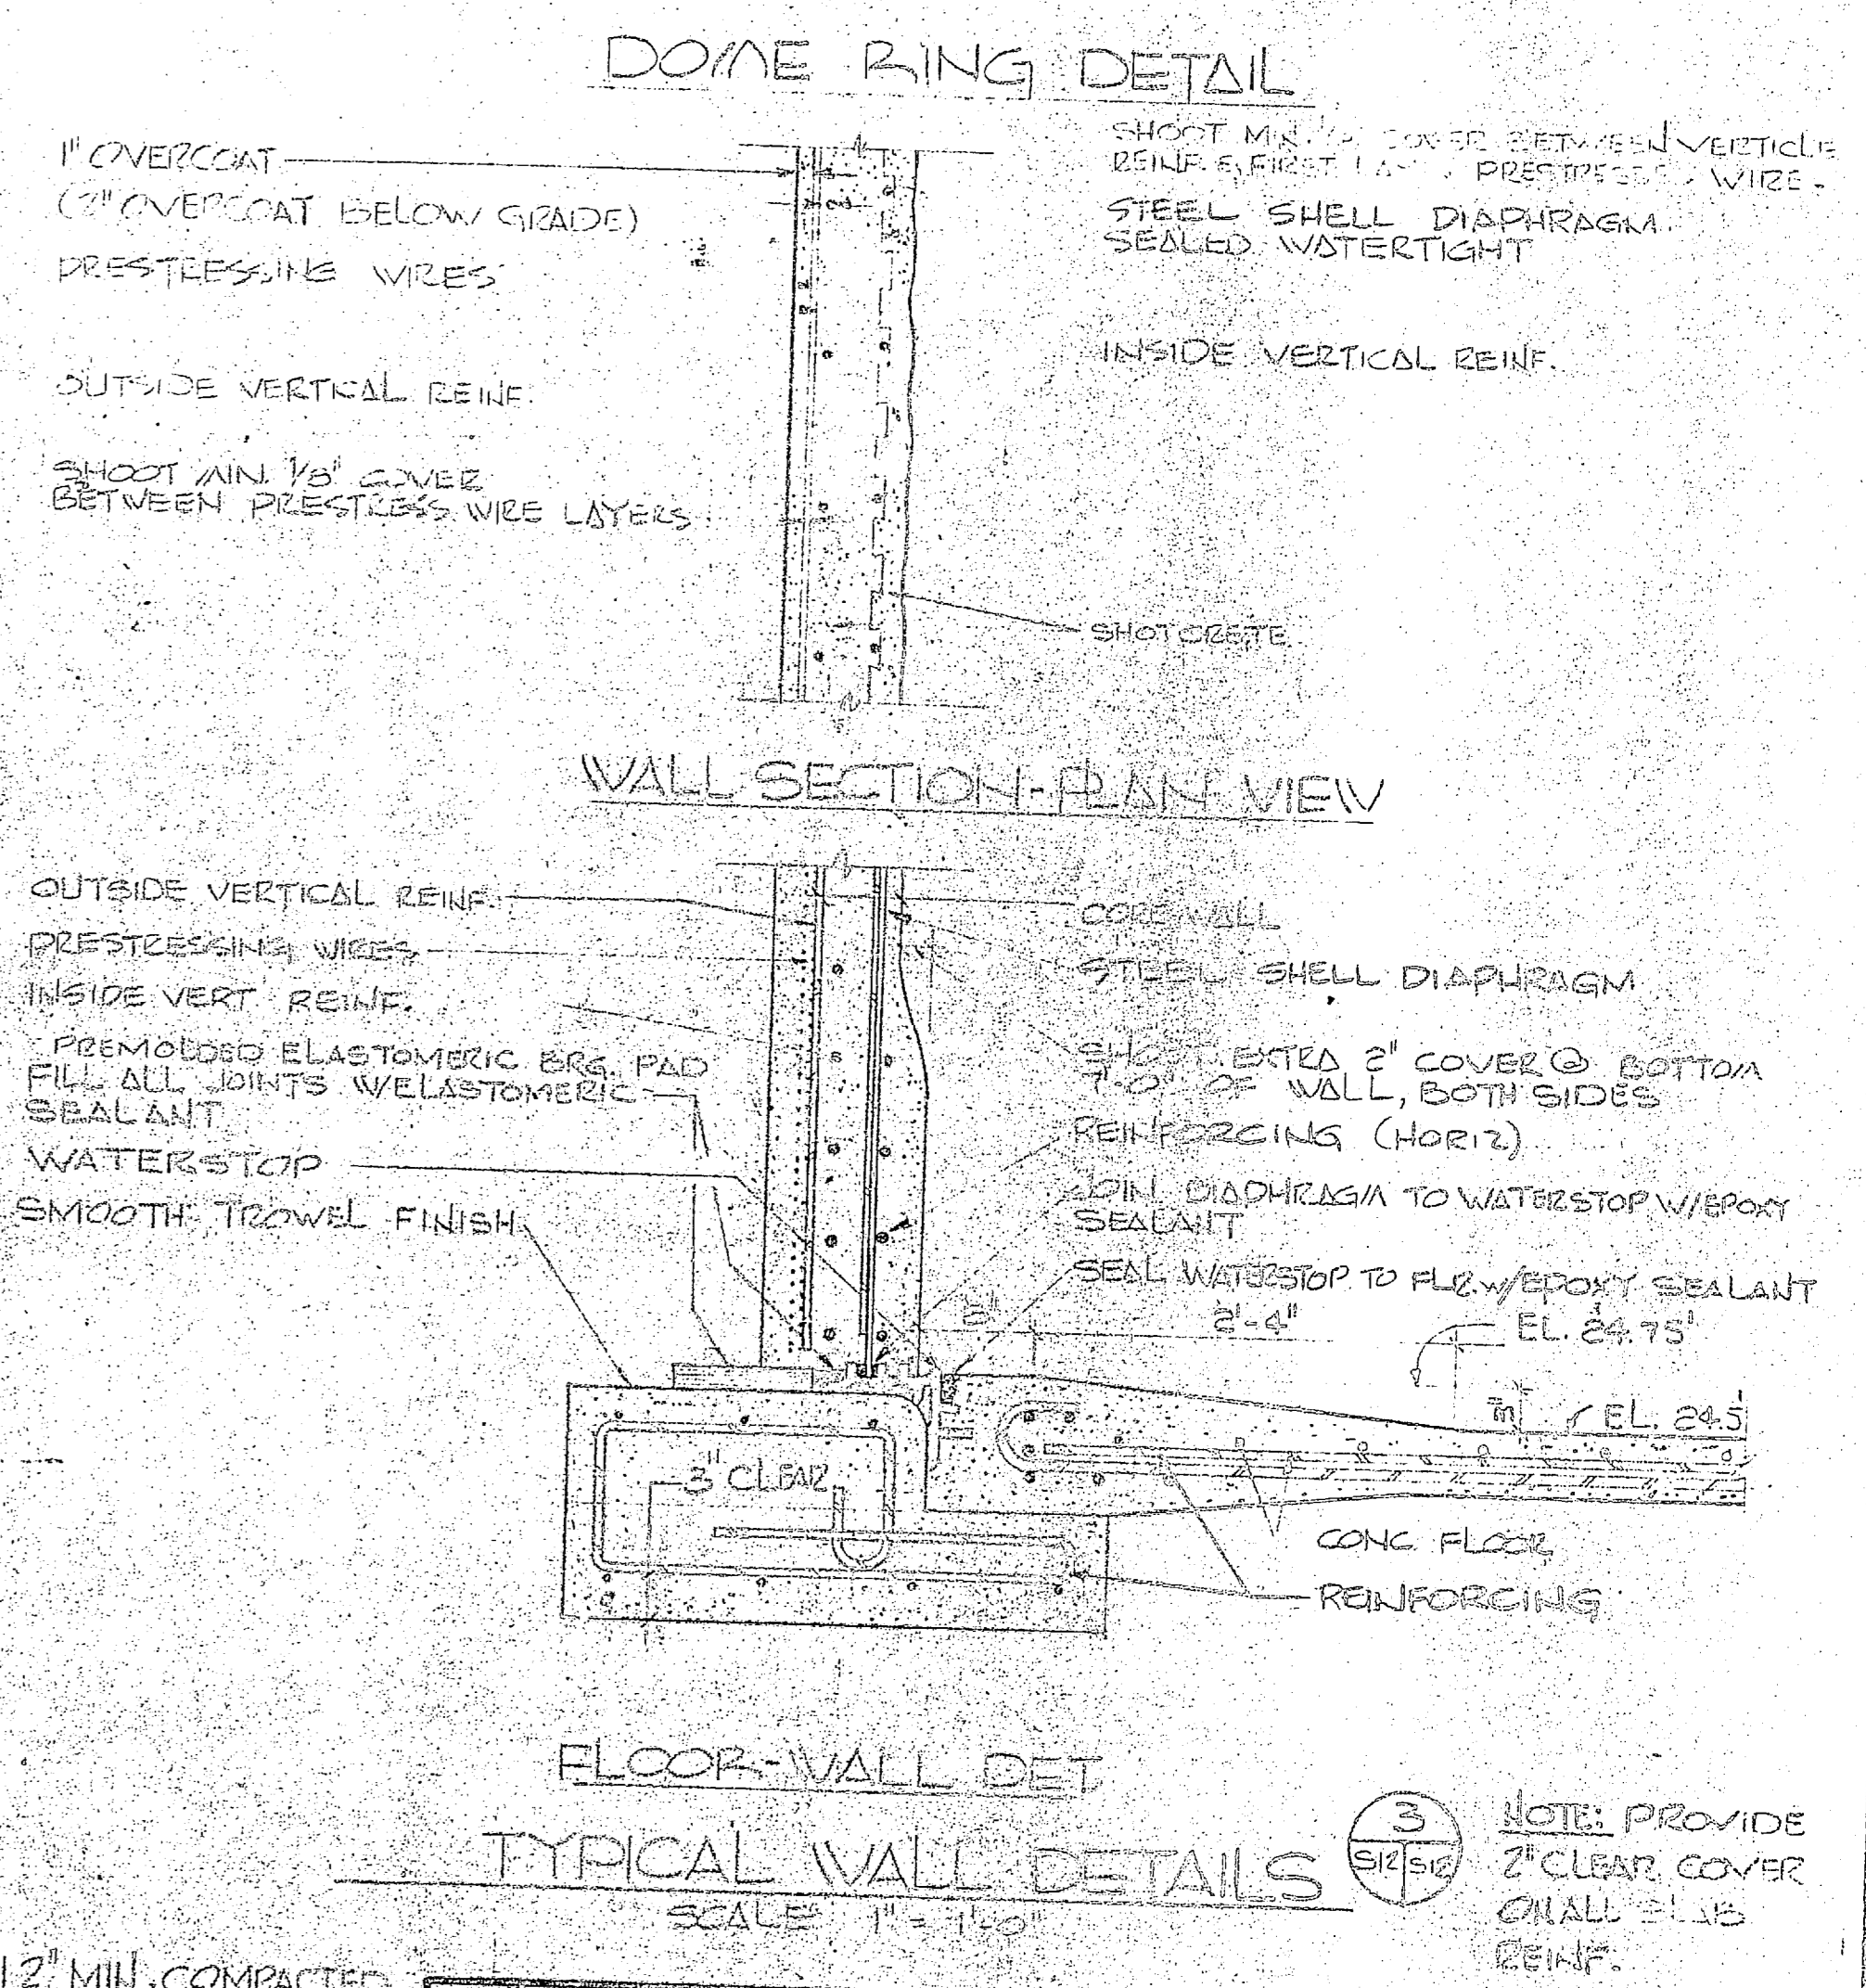 DOME RING DETAIL
1" OVERCOAT
(2" OVERCOAT BELOW GRADE)
PRESTRESSING WIRES
OUTSIDE VERTICAL REINF.
SHOOT MIN. 1/8" COVER
BETWEEN PRESTRESS WIRE LAYERS
SHOOT MIN. COVER BETWEEN VERTICLE
REINF. & FIRST PRESTRESSED WIRE.
STEEL SHELL DIAPHRAGM
SEALED WATERTIGHT
INSIDE VERTICAL REINF.
SHOTCRETE
WALL SECTION-PLAN VIEW
OUTSIDE VERTICAL REINF.
PRESTRESSING WIRES
INSIDE VERT. REINF.
PREMOLDED ELASTOMERIC BRG. PAD
FILL ALL JOINTS W/ELASTOMERIC
SEALANT
WATERSTOP
SMOOTH TROWEL FINISH
COREWALL
STEEL SHELL DIAPHRAGM
SHOOT EXTRA 2" COVER @ BOTTOM
7'-0" OF WALL, BOTH SIDES
REINFORCING (HORIZ)
JOIN DIAPHRAGM TO WATERSTOP W/EPOXY
SEALANT
SEAL WATERSTOP TO FLR. W/EPOXY SEALANT
2'-4"
EL. 24.75'
EL. 24.5'
3" CLEAR
CONC. FLOOR
REINFORCING
FLOOR-WALL DET
TYPICAL WALL DETAILS
SCALE 1" = 1'-0"
3
S12 S12
NOTE: PROVIDE
2" CLEAR COVER
ON ALL SLAB
REINF.
12" MIN. COMPACTED